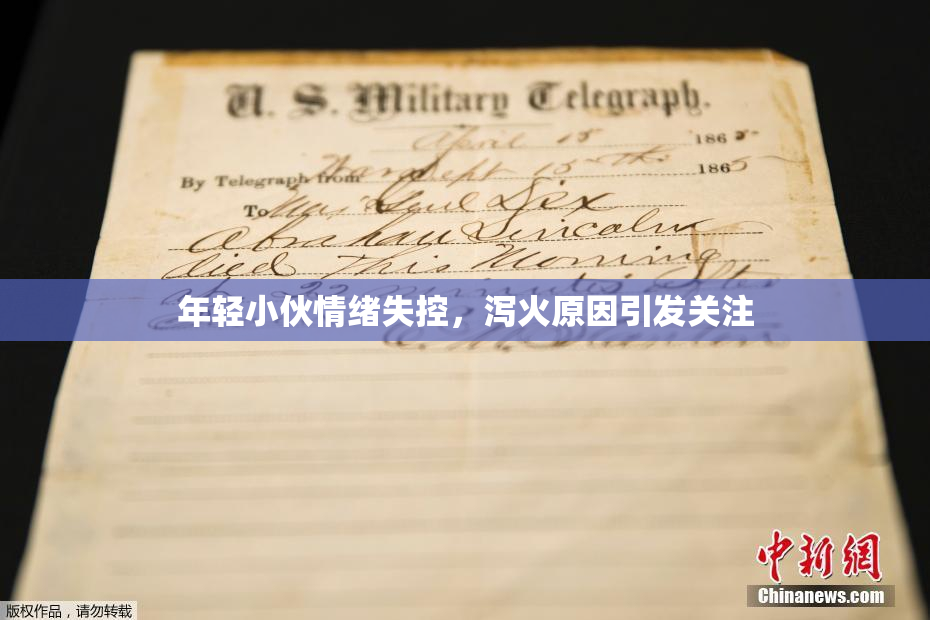 U. S. Military Telegraph.
April 15 1865
By Telegraph from War Dept 15th 1865
To Maj Genl Dix
Abraham Lincoln
died This Morning
22 minutes after
年轻小伙情绪失控，泻火原因引发关注
E. M. Stanton
中新网
Chinanews.com
版权作品，请勿转载